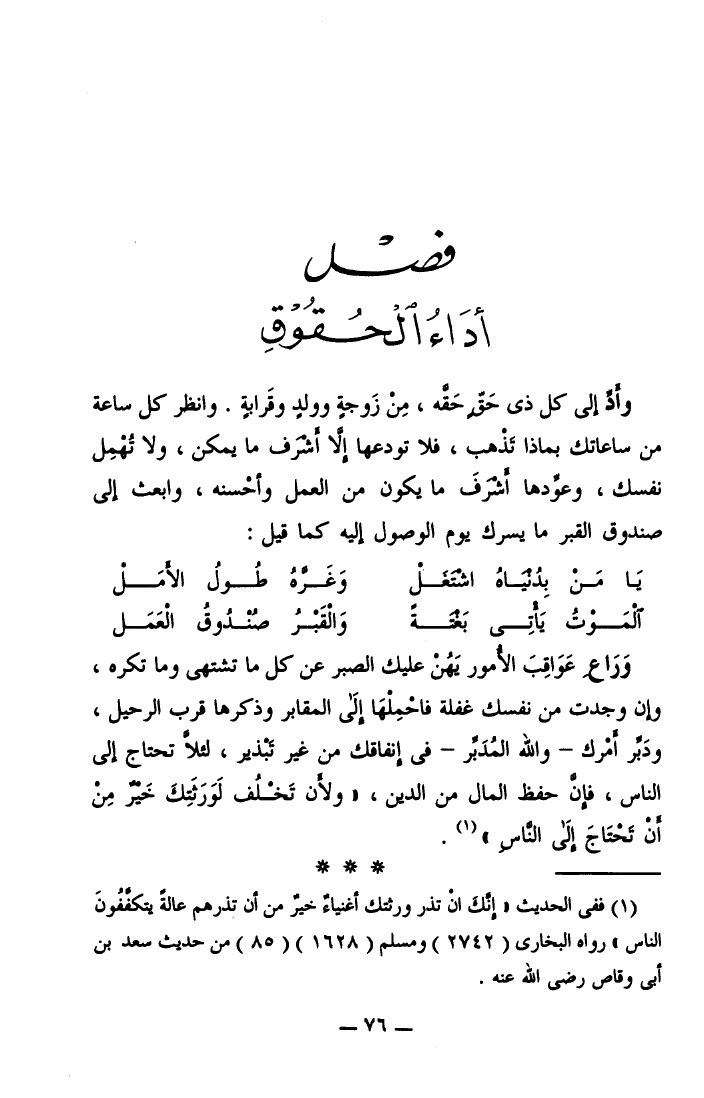 فصْـــل
أدَاءُ الْحُقُوْقِ
وأَدِّ إلى كل ذى حَقّ حَقَّه ، مِنْ زَوجةٍ وولدٍ وقَرابةٍ . وانظر كل ساعة
من ساعاتك بماذا تَذْهب ، فلا تودعها إلَّا أشْرَف ما يمكن ، ولا تُهْمِل
نفسك ، وعوِّدها أشْرَفَ ما يكون من العمل وأحْسنه ، وابعث إلى
صندوق القبر ما يسرك يوم الوصول إليه كما قيل :
يَا مَـنْ بِدُنْيَـاهُ اشْتَغَـلْ وَغَـرَّهُ طُـولُ الأمَـلْ
اَلْمَـوْتُ يَأْتِـى بَغْتَـةً وَالْقَبْـرُ صُنْـدوقُ العَمَـل
وَرَاعِ عَوَاقِبَ الأمور يَهُنْ عليك الصبر عن كل ما تشتهى وما تكره ،
وإن وجدت من نفسك غفلة فاحْمِلْهَا إلَى المقابر وذكرها قرب الرحيل ،
ودَبِّر أمْرك – والله المُدَبِّر – فى إنفاقك من غير تَبْذير ، لئلاَّ تحتاج إلى
الناس ، فإنَّ حفظ المال من الدين ، « ولأن تَخْلُف لَوَرَثَتِكَ خَيْرٌ مِنْ
أنْ تَحْتَاجَ إلَى النَّاسِ » (١) .
* * *
(١) ففى الحديث « إنَّكَ انْ تذر ورثتك أغنياءً خيرٌ من أن تذرهم عالةً يتكفَّفُونَ
الناس » رواه البخارى ( ٢٧٤٢ ) ومسلم ( ١٦٢٨ ) ( ٨٥ ) من حديث سعد بن
أبى وقاص رضى الله عنه .
— ٧٦ —